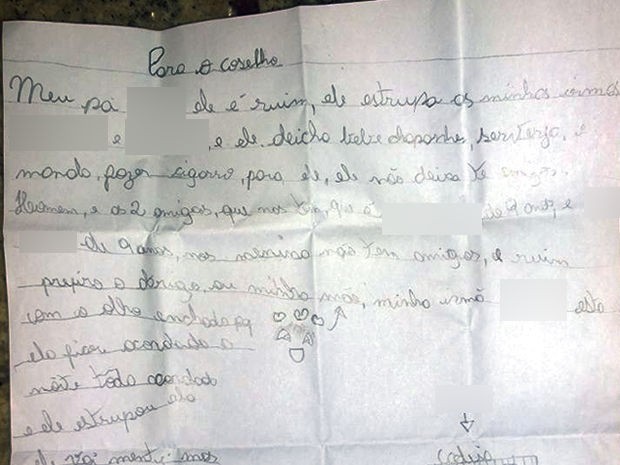 Para o coselho
Meu pa ele é ruim, ele estrupa as minhas irmas
e , e ele deicha bebe chapanhe, serverja, e
manda, fazer sigarro, para ele, ele não deixa te amigos,
Homem, e as 2 amigas, que nos tem, que é de 9 anos, e
de 9 anos, nos não tem amigos, é ruim
prefiro o abrigo, ou minha mãe, minha irmã esta
com o olho enchado pq
ela ficar acordada a
noite toda acordado
e ele estrupou ela
ele vai menti mas